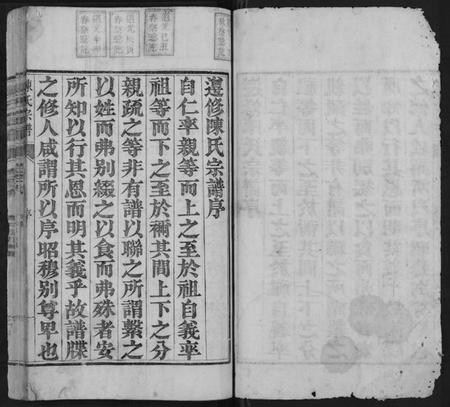 遵修陳氏宗譜序
自仁率親等而上之至於祖自義率
祖等而下之至於禰其間上下之分
親疏之等非有譜以聯之所謂繫之
以姓而弗別綴之以食而弗殊者安
所知以行其恩而明其義乎故譜牒
之修人咸謂所以序昭穆別尊卑也
陳氏宗譜
序
道光己丑
春祭鈐記
春祭鈐記
春祭鈐記